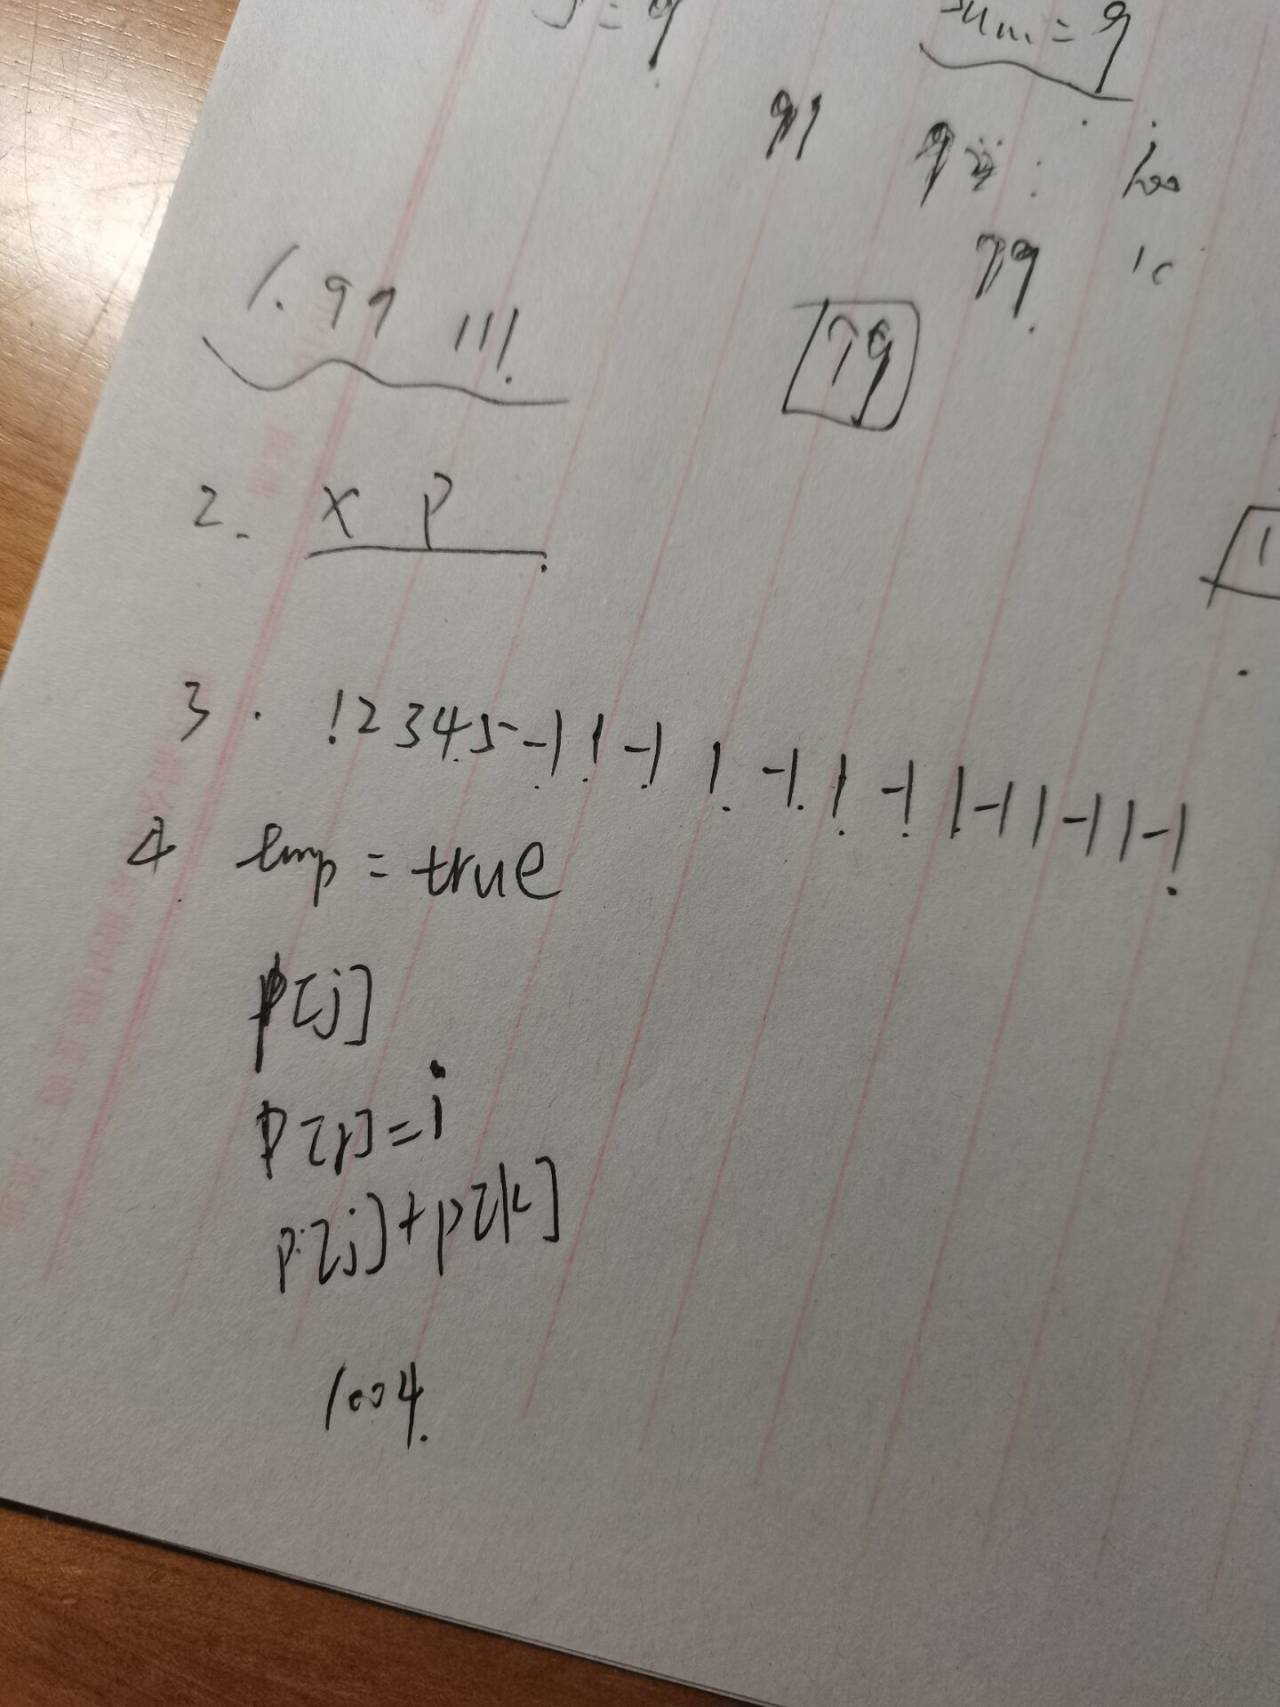 sum = 9
79
1. 99 111
79
2. X P
3. 12345 -1 1 -1 1 -1 1 -1 1 -1 1 -1 1 -1
4 tmp = true
p[j]
p[j] = i
p[j] + p[k]
1004